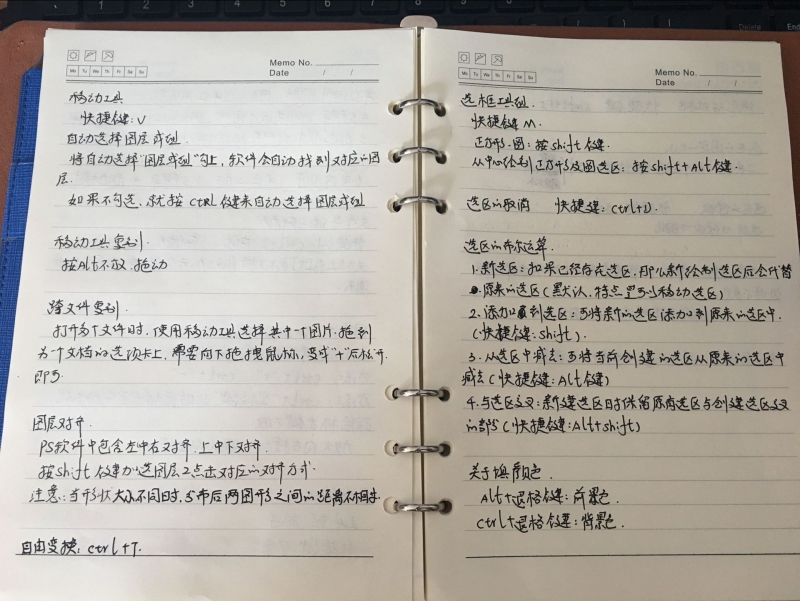 Memo No.
Date / /
Mo Tu We Th Fr Sa Su
移动工具
快捷键:V
自动选择图层或组.
将自动选择"图层或组"勾上,软件会自动找到对应的图
层.
如果不勾选,就按ctrl键来自动选择图层或组
移动工具复制.
按Alt不放,拖动
跨文件复制.
打开多个文件时,使用移动工具选择其中一个图片,拖到
另一个文档的选项卡上,需要向下拖拽鼠标,变成"+"后松开.
即可
图层对齐.
PS软件中包含左中右对齐,上中下对齐.
按shift键加选图层2点击对应的对齐方式.
注意:当形状大小不同时,分布后两图形之间的距离不相等.
自由变换:ctrl+T.
Memo No.
Date / /
Mo Tu We Th Fr Sa Su
选框工具组.
快捷键M.
正方形.圆:按shift键.
从中心绘制正方形及圆选区:按shift+Alt键.
选区的取消 快捷键:ctrl+D.
选区的布尔运算.
1.新选区:如果已经存在选区,那么新绘制选区后会代替
原来的选区(默认,特点是可以移动选区)
2.添加到选区:可将新的选区添加到原来的选区中.
(快捷键:shift).
3.从选区中减去:可将当前创建的选区从原来的选区中
减去(快捷键:Alt键)
4.与选区交叉:新建选区时保留原有选区与创建选区交叉
的部分(快捷键:Alt+shift)
关于填颜色.
Alt+退格键:前景色.
ctrl+退格键:背景色.